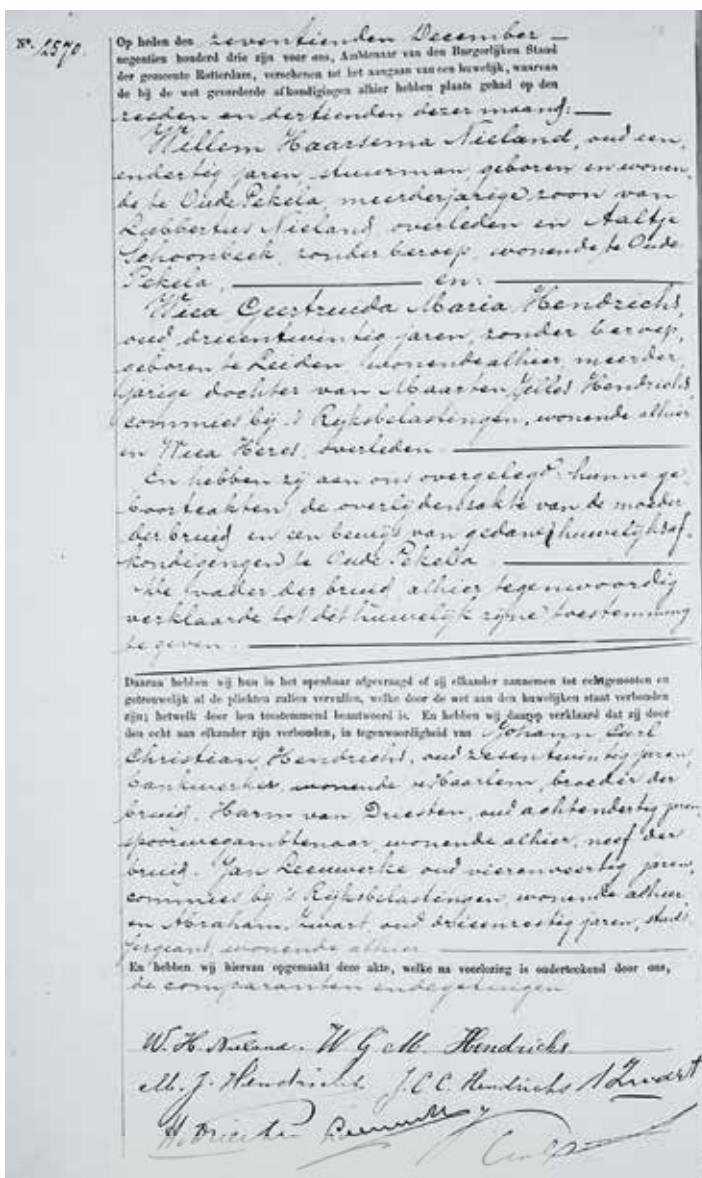 Nº. 2570.
Op heden den zeventienden December
negentien honderd drie zijn voor ons, Ambtenaar van den Burgerlijken Stand
der gemeente Rotterdam, verschenen tot het aangaan van een huwelijk, waarvan
de bij de wet gevorderde afkondigingen alhier hebben plaats gehad op den
zesden en dertienden dezer maand:
Willem Haarsema Nieland, oud een
endertig jaren, stuurman, geboren en wonen,
de te Oude Pekela, meerderjarige zoon van
Lubbertus Nieland, overleden en Aaltje
Schoonbeek, zonder beroep, wonende te Oude
Pekela, en:
Wiea Geertruida Maria Hendrichs,
oud drieentwintig jaren, zonder beroep,
geboren te Leiden, wonende alhier, meerder
jarige dochter van Maarten Jelles Hendrichs,
commies bij 's Rijksbelastingen, wonende alhier
en Wiea Heres, overleden.
En hebben zij aan ons overgelegd: hunne ge
boorteakten, de overlijdensakte van de moeder
der bruid en een bewijs van gedane huwelijksaf-
kondigingen te Oude Pekela.
De vader der bruid, alhier tegenwoordig
verklaarde tot dit huwelijk zijne toestemming
te geven.
Daarna hebben wij hun in het openbaar afgevraagd of zij elkander aannemen tot echtgenooten en
getrouwelijk al de plichten zullen vervullen, welke door de wet aan den huwelijken staat verbonden
zijn; hetwelk door hen toestemmend beantwoord is. En hebben wij daarop verklaard dat zij door
den echt aan elkander zijn verbonden, in tegenwoordigheid van Johann Carl
Christian Hendrichs, oud zesentwintig jaren,
bankwerker, wonende te Haarlem, broeder der
bruid, Harm van Driesten, oud achtendertig jaren,
spoorwegambtenaar, wonende alhier, neef der
bruid. Jan Leeuwerke oud vierenveertig jaren,
commies bij 's Rijksbelastingen, wonende alhier
en Abraham Zwart, oud drieenzestig jaren, stads
sergeant, wonende alhier
En hebben wij hiervan opgemaakt deze akte, welke na voorlezing is onderteekend door ons,
de comparanten en de getuigen
W. H. Nieland. W G M. Hendrichs
M. J. Hendrichs J. C. C. Hendrichs A Zwart
H v Driesten